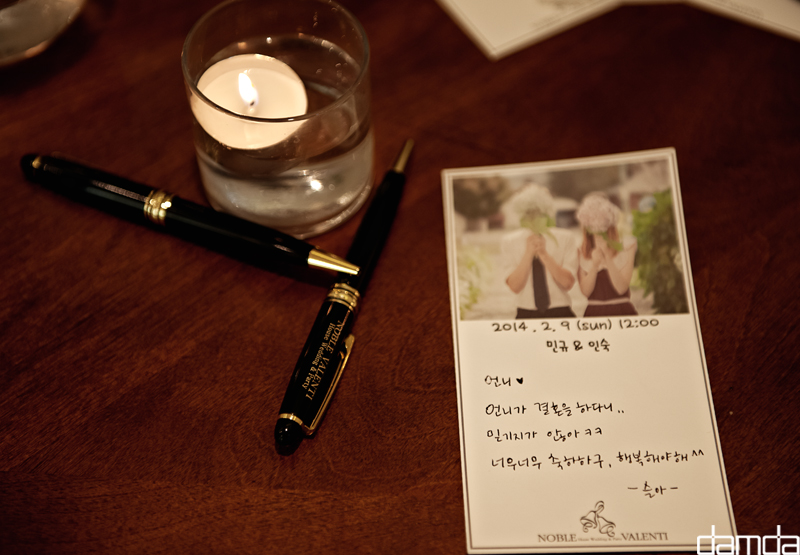 NOBLE VALENTI
House Wedding & Party
2014. 2. 9 (sun) 12:00
민규 & 인숙
언니♥
언니가 결혼을 하다니..
믿기지가 않아 ㅋㅋ
너무너무 축하하구, 행복해야해^^
-슬아-
NOBLE House Wedding & Party VALENTI
damda